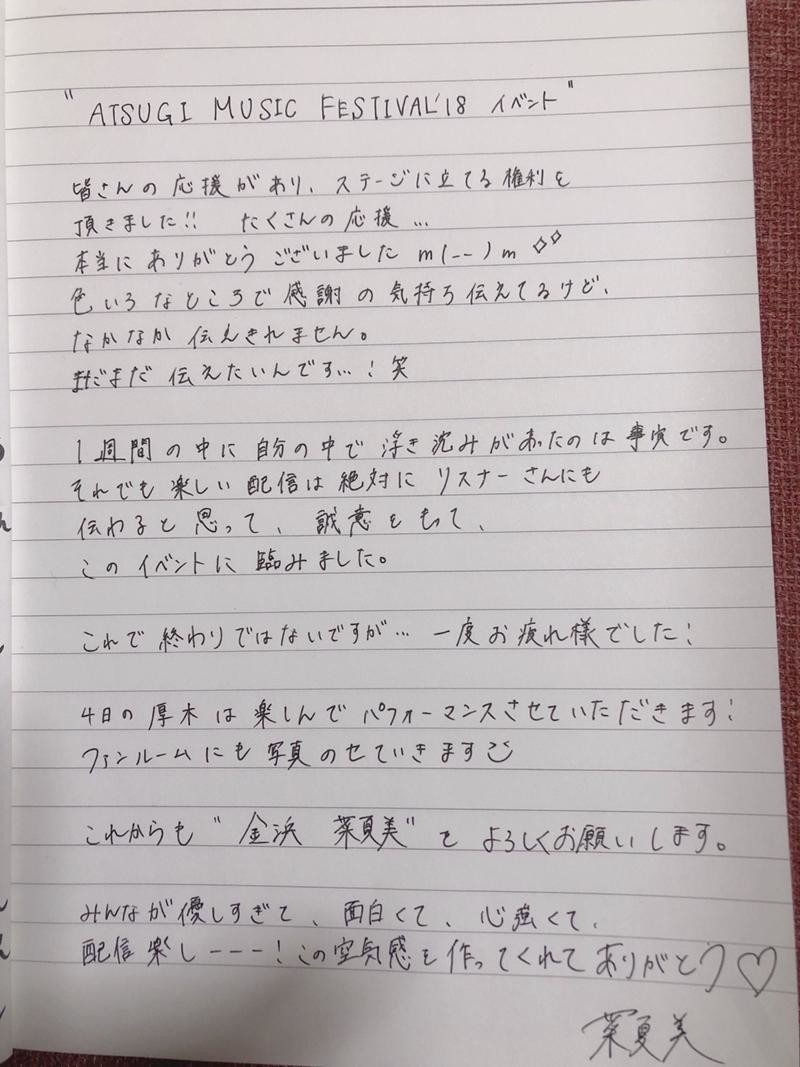 "ATSUGI MUSIC FESTIVAL'18 イベント"
皆さんの応援があり、ステージに立てる権利を
頂きました!! たくさんの応援...
本当にありがとうございましたm(--)m
色いろなところで感謝の気持ち伝えてるけど、
なかなか伝えきれません。
まだまだ伝えたいんです...! 笑
1週間の中に自分の中で浮き沈みがあったのは事実です。
それでも楽しい配信は絶対にリスナーさんにも
伝わると思って、誠意をもって、
このイベントに臨みました。
これで終わりではないですが... 一度お疲れ様でした!
4日の厚木は楽しんでパフォーマンスさせていただきます!
ファンルームにも写真のせていきます
これからも"金浜 菜夏美"をよろしくお願いします。
みんなが優しすぎて、面白くて、心強くて、
配信楽しーーー!この空気感を作ってくれてありがとう♡
菜夏美